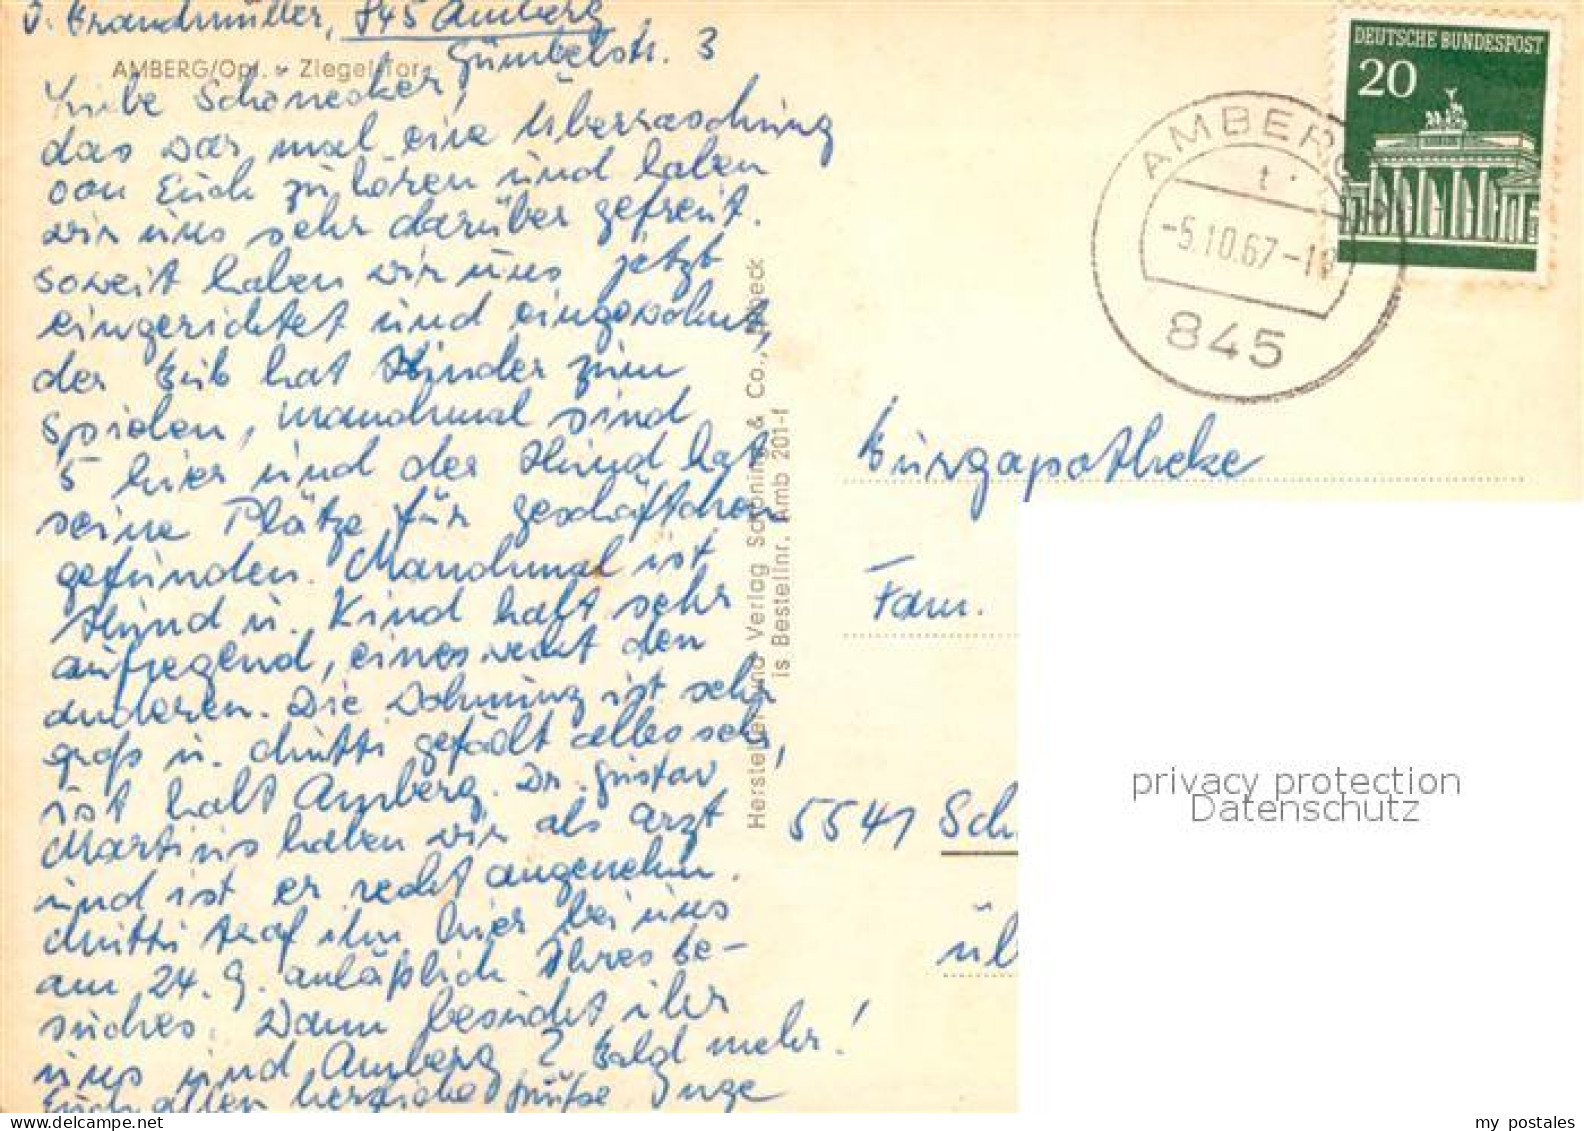 J. Brandmüller, 845 Amberg
Gümbelstr. 3
AMBERG/Opf. - Ziegel-Tor
Liebe Schönecker,
das war mal eine Überraschung
von Euch zu hören und haben
wir uns sehr darüber gefreut.
Soweit haben wir uns jetzt
eingerichtet und eingewohnt,
der Bub hat Kinder zum
Spielen, manchmal sind
5 hier und der Hund hat
seine Plätze für Geschäftchen
gefunden. Manchmal ist
Hund u. Kind halt sehr
aufregend, eines weckt den
anderen. Die Wohnung ist sehr
groß u. Mutti gefällt alles sehr,
ist halt Amberg. Dr. Gustav
Martius haben wir als Arzt
und ist er recht angenehm.
Mutti traf ihn hier bei uns
am 24. 9. anläßlich Ihres Be-
suches. Wann besucht ihr
uns und Amberg? Bald mehr!
Euch allen herzliche Grüße Inge
Hersteller und Verlag Schöning & Co., Lübeck
is Bestellnr. Amb 201-f
DEUTSCHE BUNDESPOST
20
AMBERG
t
-5.10.67-18
845
Burgapotheke
Fam.
5541 Sch
üb
privacy protection
Datenschutz
my postales